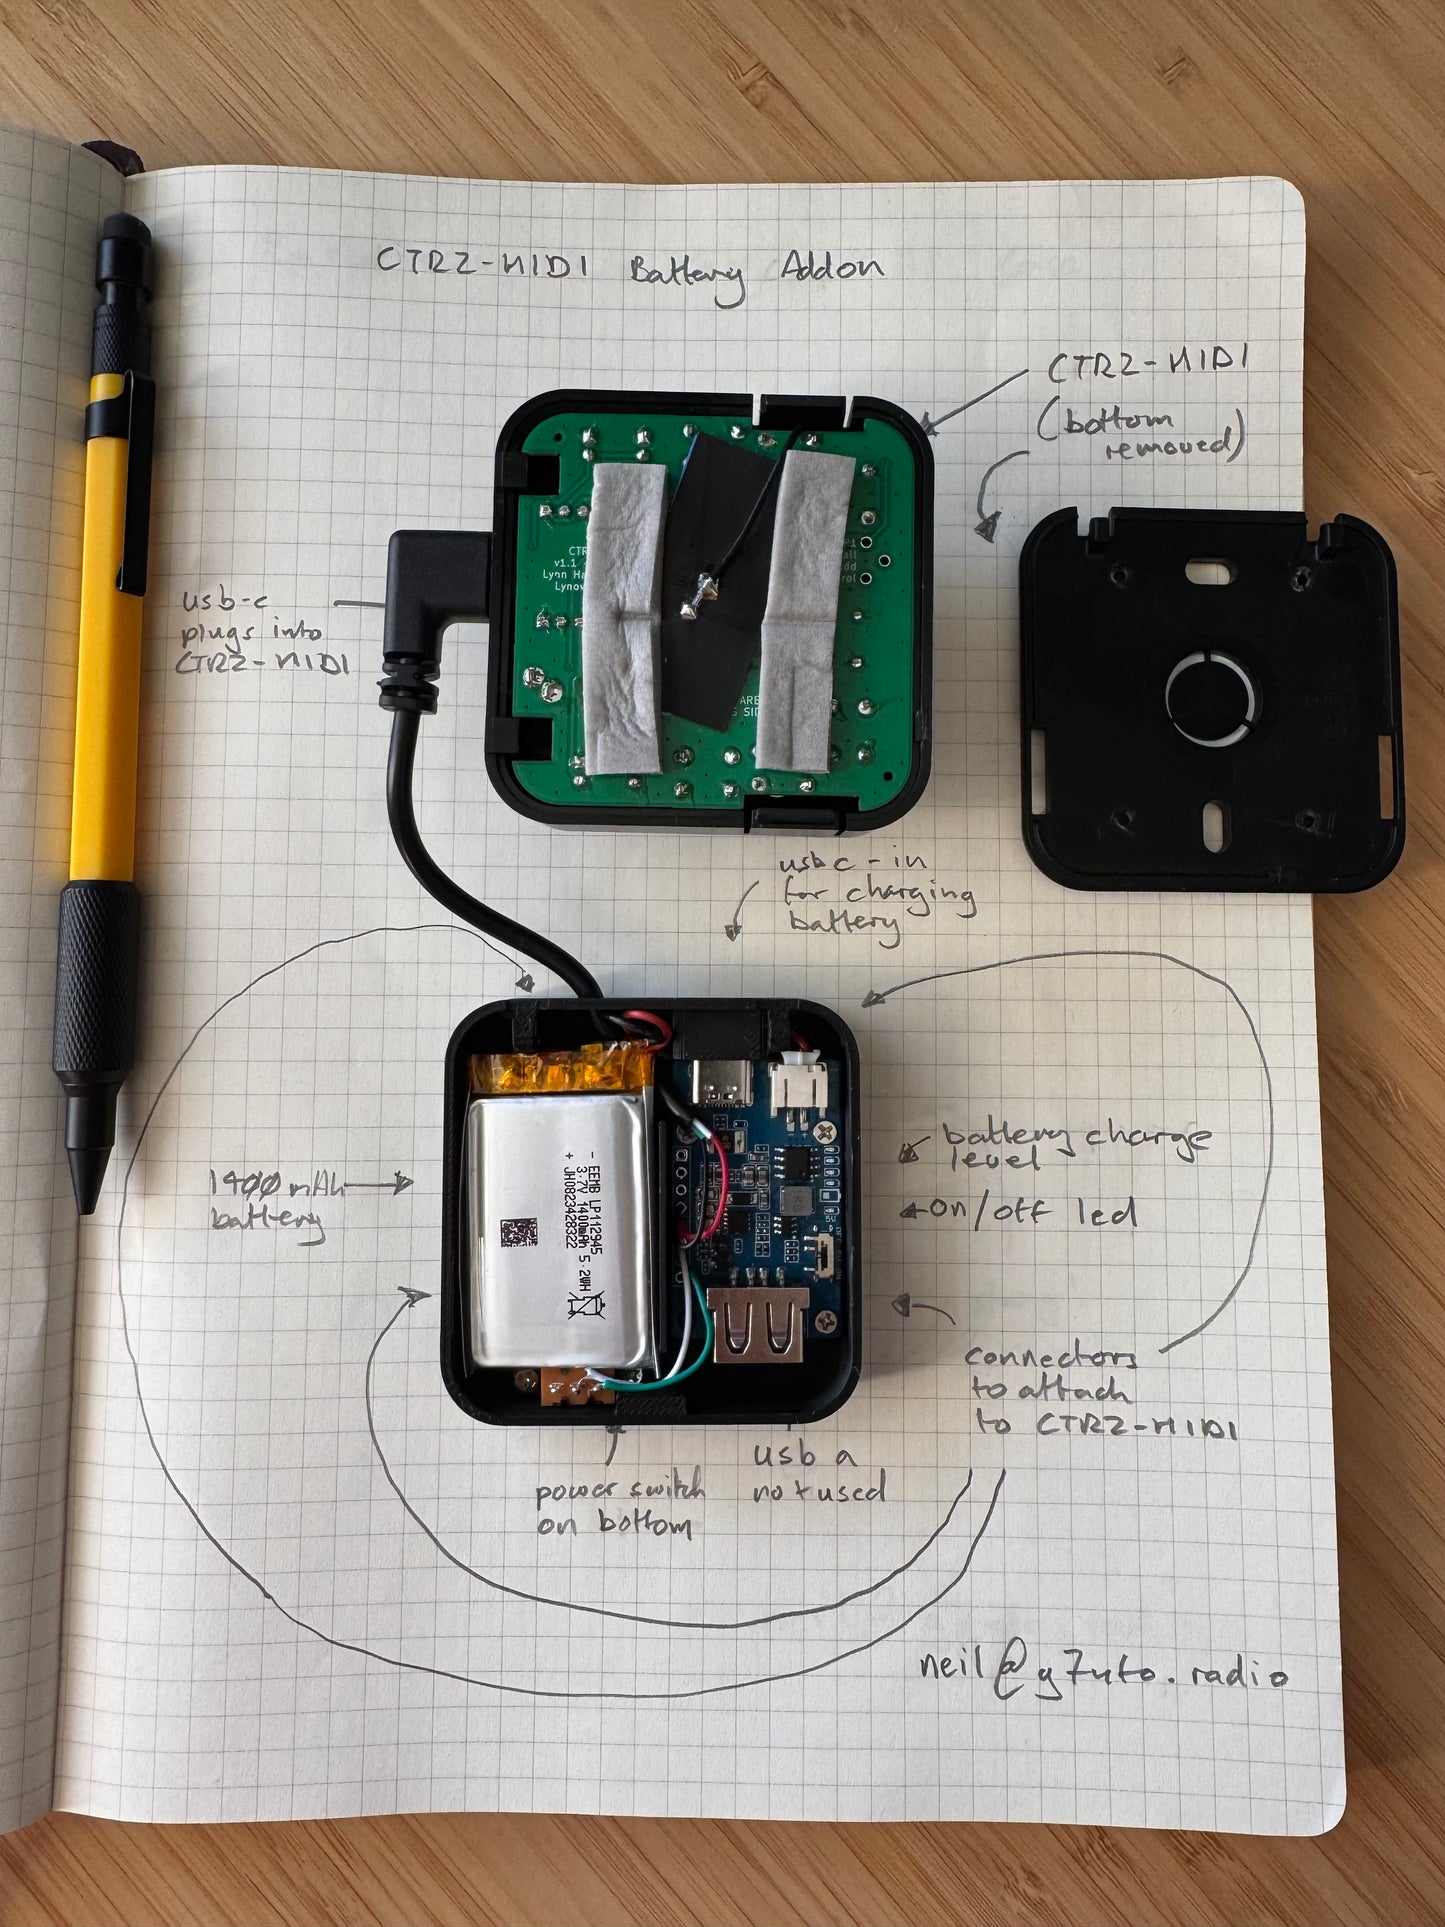 CTR2-MIDI Battery Addon
CTR2-MIDI
(bottom
removed)
CTR
v1.1
Lynn Ha
Lynov
P1
all
dd
rol
ARE
S SID
usb-c
plugs into
CTR2-MIDI
usb c - in
for charging
battery
battery charge
level
on/off led
1400 mAh
battery
- EEMB LP112945
3.7V 1400mAh 5.2WH
+ JH0823428322
connectors
to attach
to CTR2-MIDI
power switch
on bottom
usb a
not used
neil@g7uto.radio